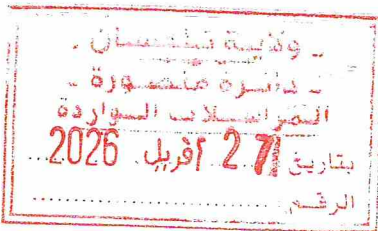 ـ ولاية تلمسان ـ
ـ دائرة منصورة ـ
المراسلات الواردة
بتاريخ 27 أفريل 2026
الرقم